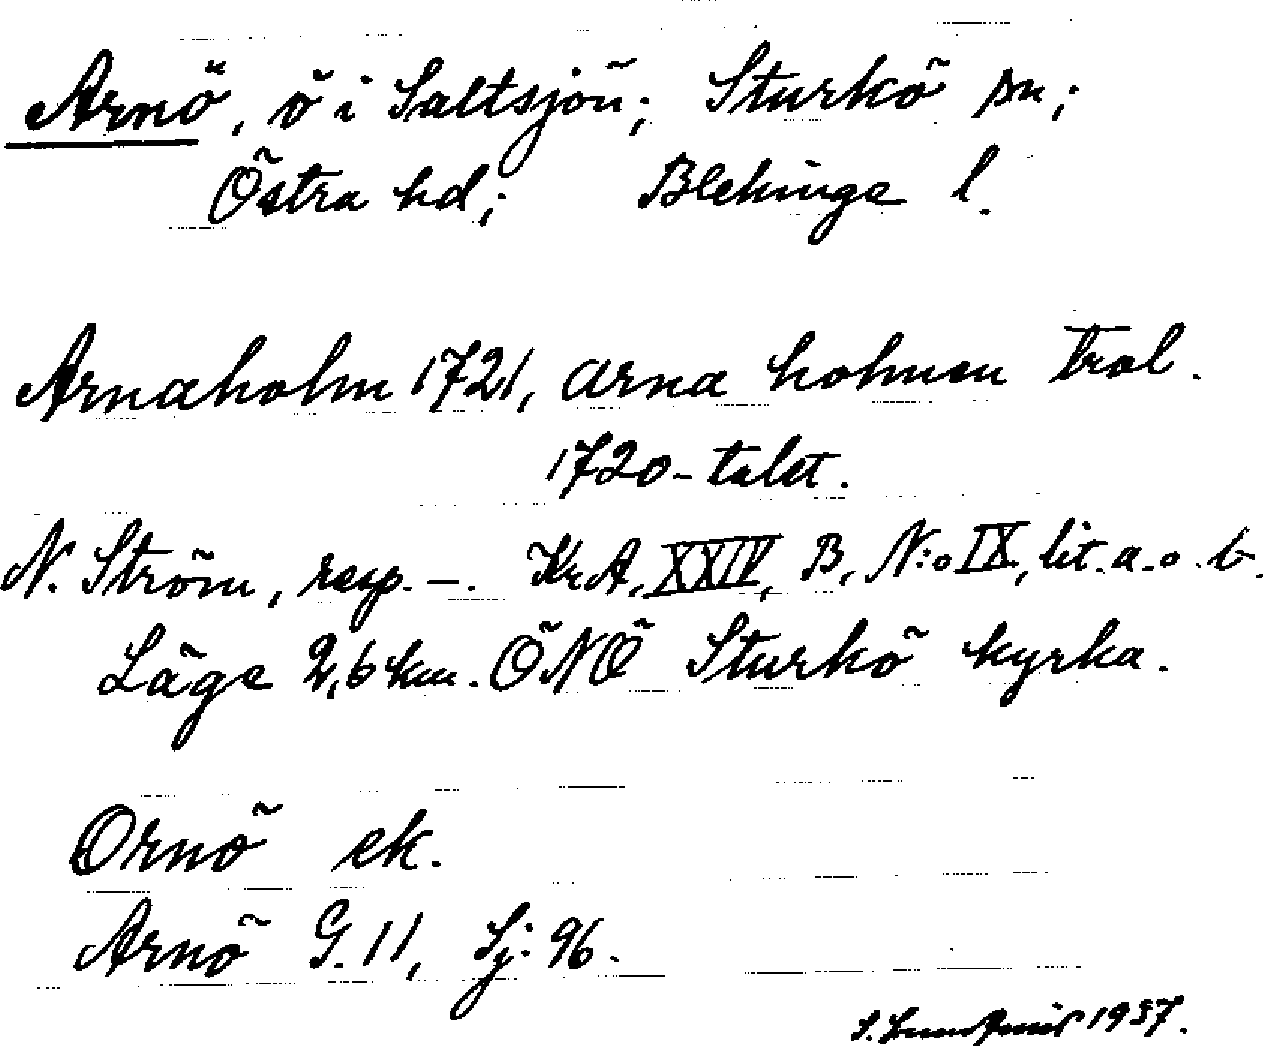 Arnö, ö i Saltsjön; Sturkö sn;
Östra hd; Blekinge l.
Arnaholm 1721, arna holmen trol.
1720-talet.
N. Ström, resp. –. Kr.A, XXIV, B, N:o IX, lit. a. o. b.
Läge 2,6 km. ÖNÖ Sturkö kyrka.
Ornö ek.
Arnö G. 11, Sj: 96.
S. 1937.